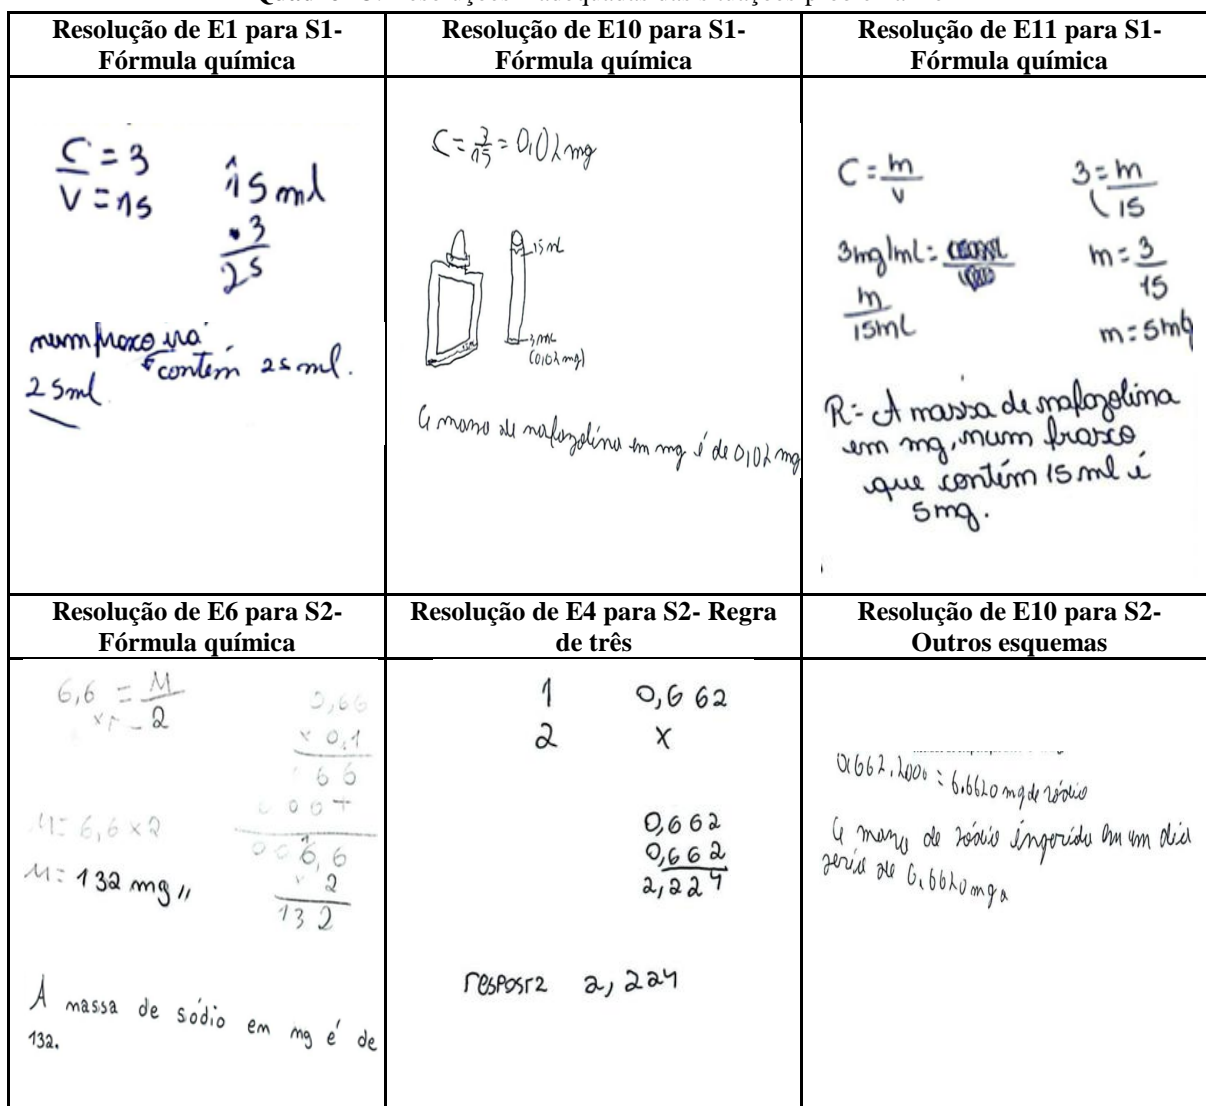 Resolução de E1 para S1-
Fórmula química
Resolução de E10 para S1-
Fórmula química
Resolução de E11 para S1-
Fórmula química
C = 3
V = 15
15 ml
• 3
25
num frasco irá
contém 25 ml.
25ml
C = 3/15 = 0,02 mg
15 ml
3 ml
(0,02 mg)
A massa de nafazolina em mg é de 0,02 mg
C = m/v
3mg/ml =
m/15ml
3 = m/15
m = 3/15
m = 5mg
R = A massa de nafazolina
em mg, num frasco
que contém 15 ml é
5mg.
Resolução de E6 para S2-
Fórmula química
Resolução de E4 para S2- Regra
de três
Resolução de E10 para S2-
Outros esquemas
6,6 = M/2
M = 6,6 x 2
M = 132 mg //
0,66
x 0,1
66
000+
006,6
x 2
132
A massa de sódio em mg é de
132.
1 0,662
2 x
0,662
0,662
2,224
resposta 2,224
0,662.2000 = 6.6620 mg de sódio
A massa de sódio ingerida em um dia
seria de 6.6620 mg